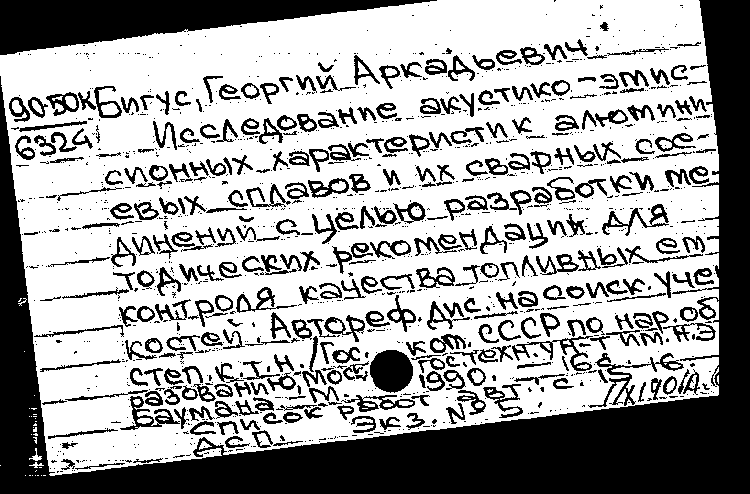 90-50к Бигус, Георгий Аркадьевич.
6324
Исследование акустико-эмис-
сионных характеристик алюмини-
евых сплавов и их сварных сое-
динений с целью разработки ме-
тодических рекомендаций для
контроля качества топливных ем-
костей: Автореф. дис. на соиск. учен
степ. к.т.н. / Гос. ком. СССР по нар. об
разованию, Моск. гос. техн. ун-т им. н.э
Баумана. М. 1990. – 16 с.
Список работ авт.: с. 15-16.
ДСП. Экз. № 5.